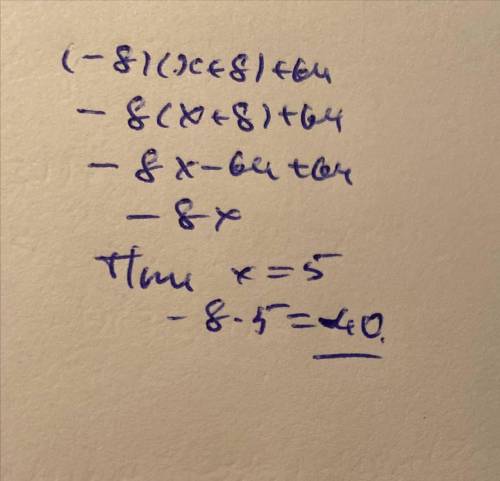 (-8)(x+8)+64
- 8(x+8)+64
- 8x-64+64
- 8x
При x=5
- 8·5=-40.